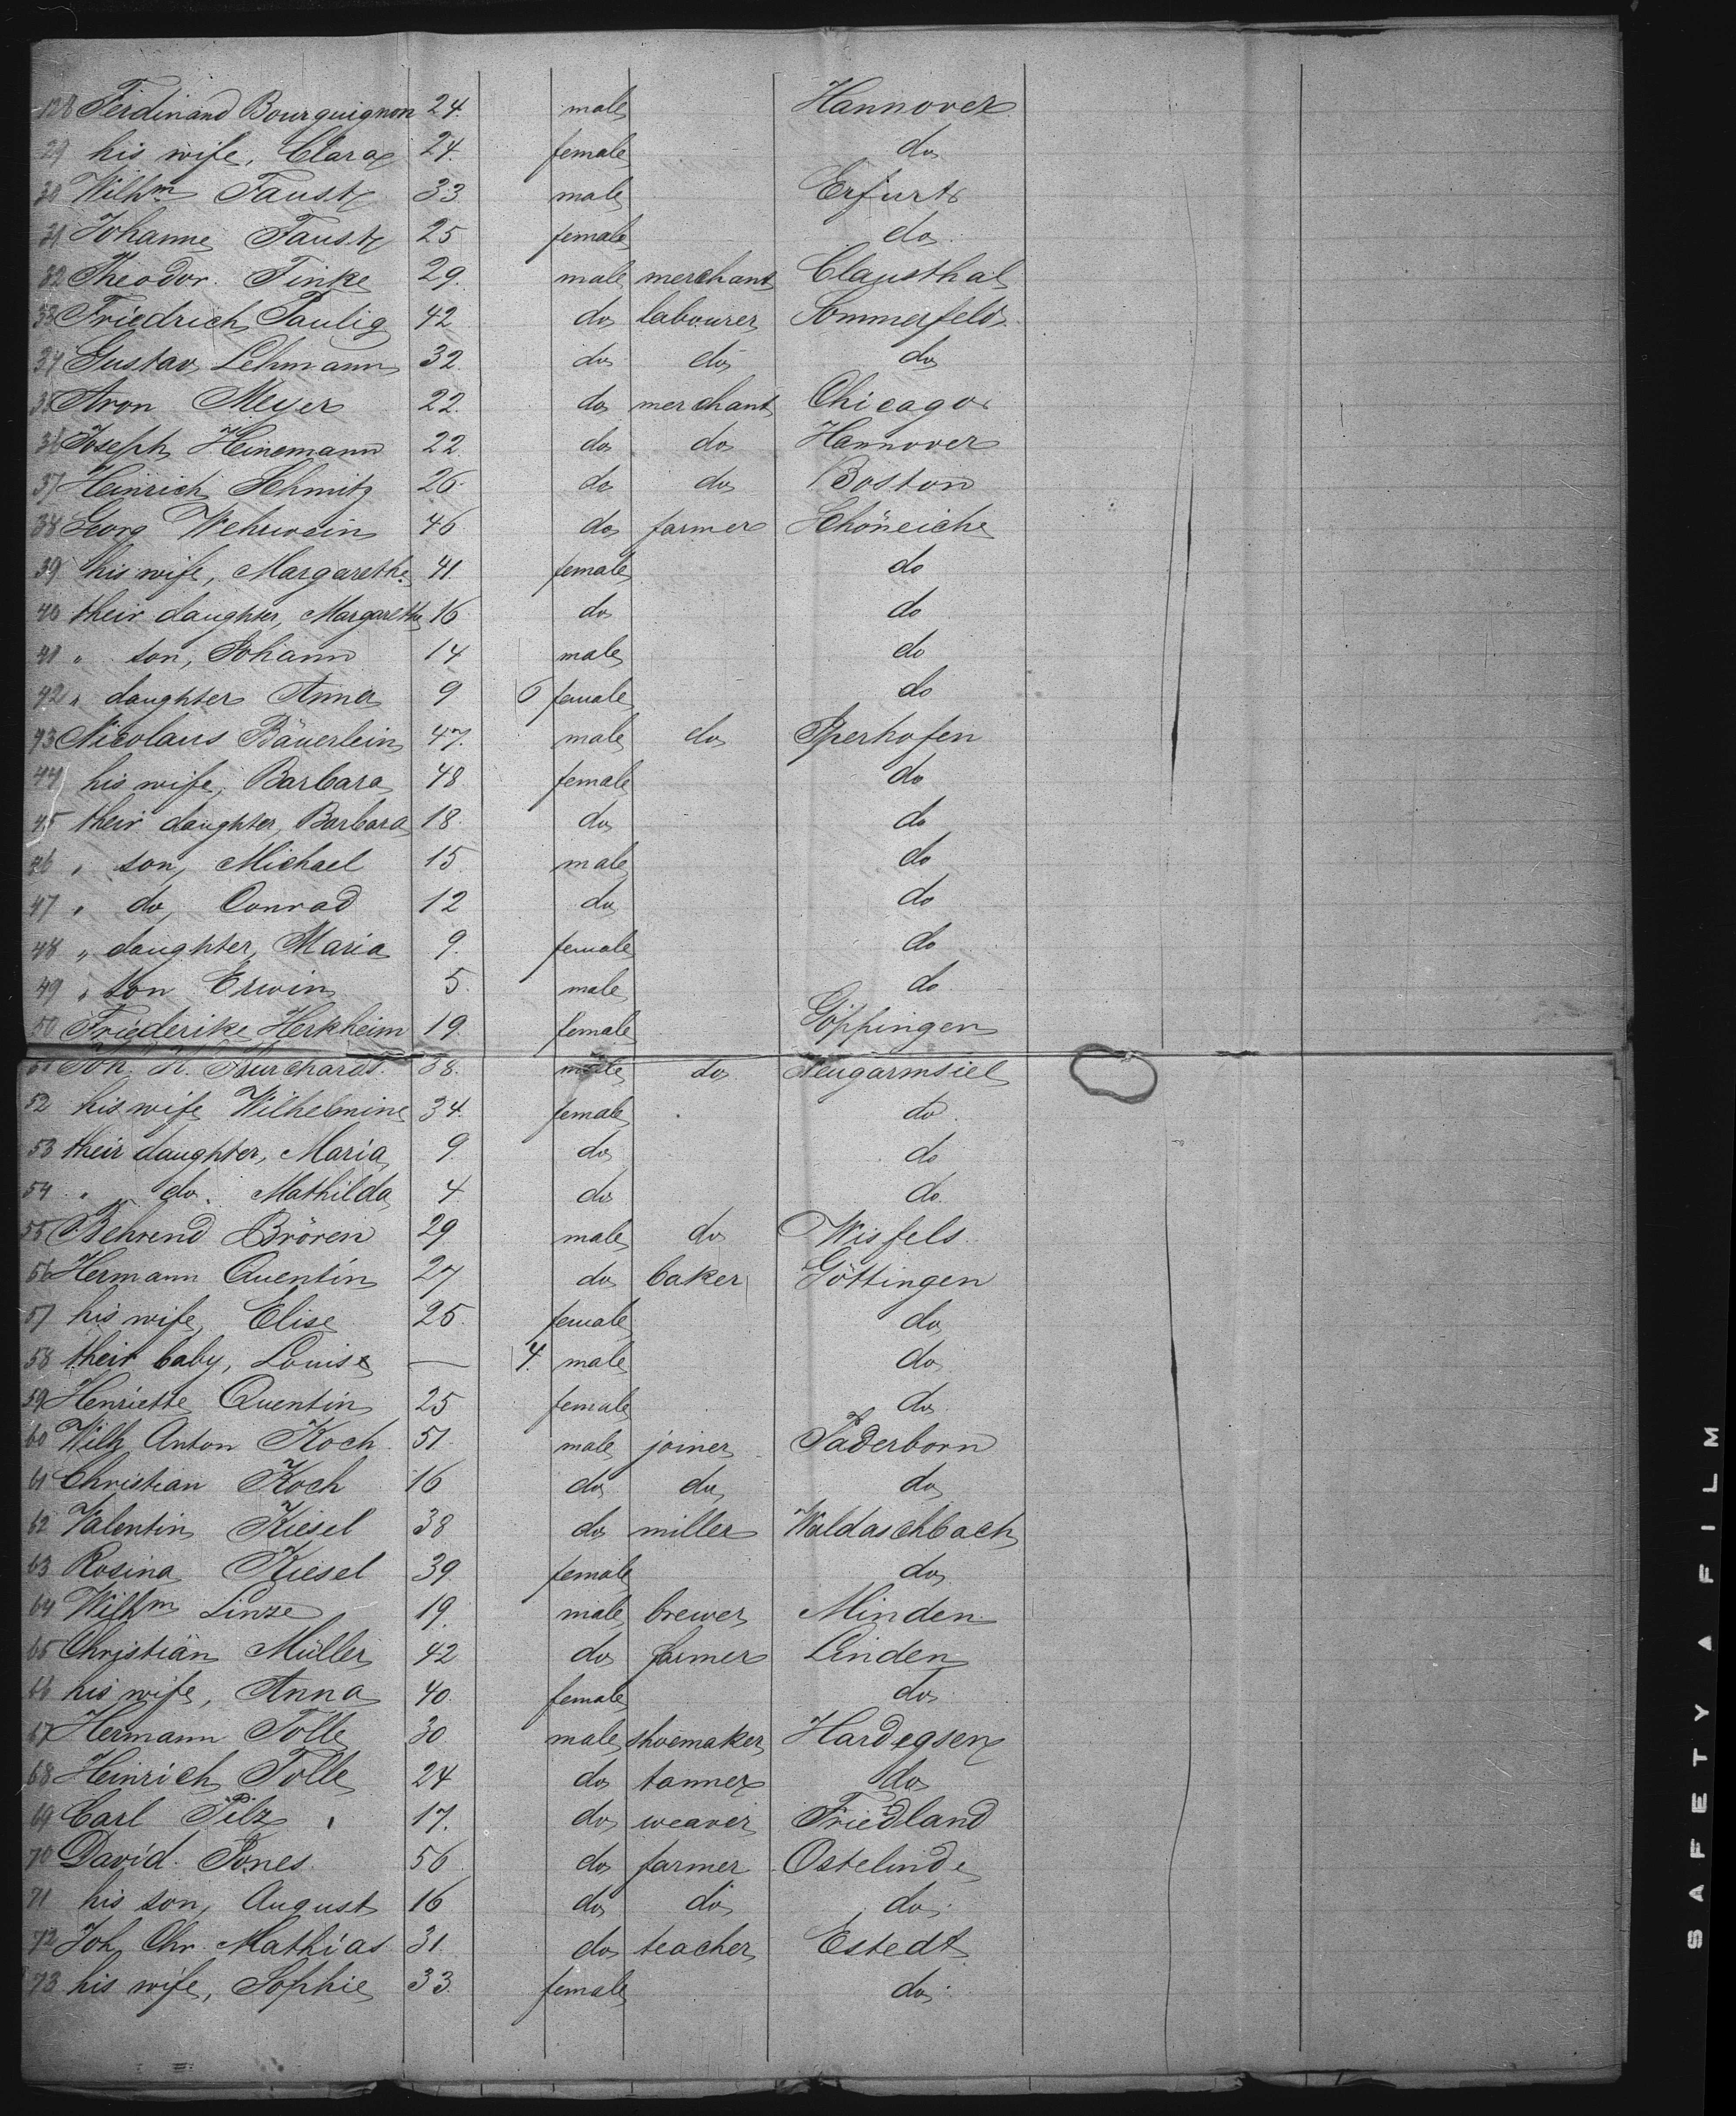 128 Ferdinand Bourguignon 24. male Hannover
29 his wife, Clara 24. female do
30 Wilhm Faust 33 male Erfurt
31 Johanne Faust 25 female do
32 Theodor. Finke 29. male merchant Clausthal
33 Friedrich Paulig 42 do labourer Sommerfeld
34 Gustav Lehmann 32. do do do
35 Aron Meyer 22. do merchant Chicago
36 Joseph Heinemann 22. do do Hannover
37 Heinrich Schmitz 26 do do Boston
38 Georg Wehrwein 46 do farmer Schöneiche
39 his wife, Margarethe 41. female do
40 their daughter, Margarethe 16 do do
41 " son, Johann 14 male do
42 " daughter Anna 9 6 female do
43 Nicolaus Bäuerlein 47. male do
44 his wife, Barbara 48 female do
45 their daughter, Barbara 18 do do
46 " son, Michael 15 male do
47 " do, Conrad 12 do do
48 " daughter, Maria 9. female do
49 " son Erwin 5. male do
50 Friederike Herkheim 19. female Göppingen
51 Joh. 38. male do Neugarmsiel
52 his wife Wilhelmine 34. female do
53 their daughter, Maria 9 do do
54 " do. Mathilda 4 do do
55 Behrend Brören 29 male do Wisfels
56 Hermann Quentin 27 do baker Göttingen
57 his wife, Elise 25. female do
58 their baby, Louise — 4. male do
59 Henriette Quentin 25 female do
60 Wilh Anton Koch 51. male joiner Paderborn
61 Christian Koch 16 do do do
62 Valentin Kiesel 38 do miller Waldaschbach
63 Rosina Kiesel 39 female do
64 Wilhm Linze 19. male brewer Minden
65 Christian Müller 42 do farmer Linden
66 his wife, Anna 40. female do
67 Hermann Tolle 30. male shoemaker Hardegsen
68 Heinrich Tolle 24 do tanner do
69 Carl Pilz 17. do weaver Friedland
70 David. Jones. 56 do farmer Ostelinde
71 his son, August 16 do do do
72 Joh Chr. Mathias 31. do teacher Estedt
73 his wife, Sophie 33. female do
SAFETY A FILM